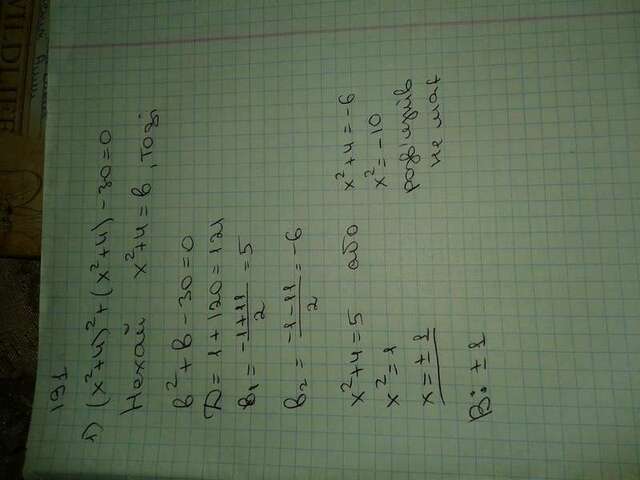 WILDLIFE
191
г) (x²+4)²+(x²+4)-30=0
Нехай x²+4=в, тоді
в²+в-30=0
D=1+120=121
в₁=(-1+11)/2=5
в₂=(-1-11)/2=-6
x²+4=5 або x²+4=-6
x²=1 x²=-10
x=±1 розв'язків
не має
В: ±1